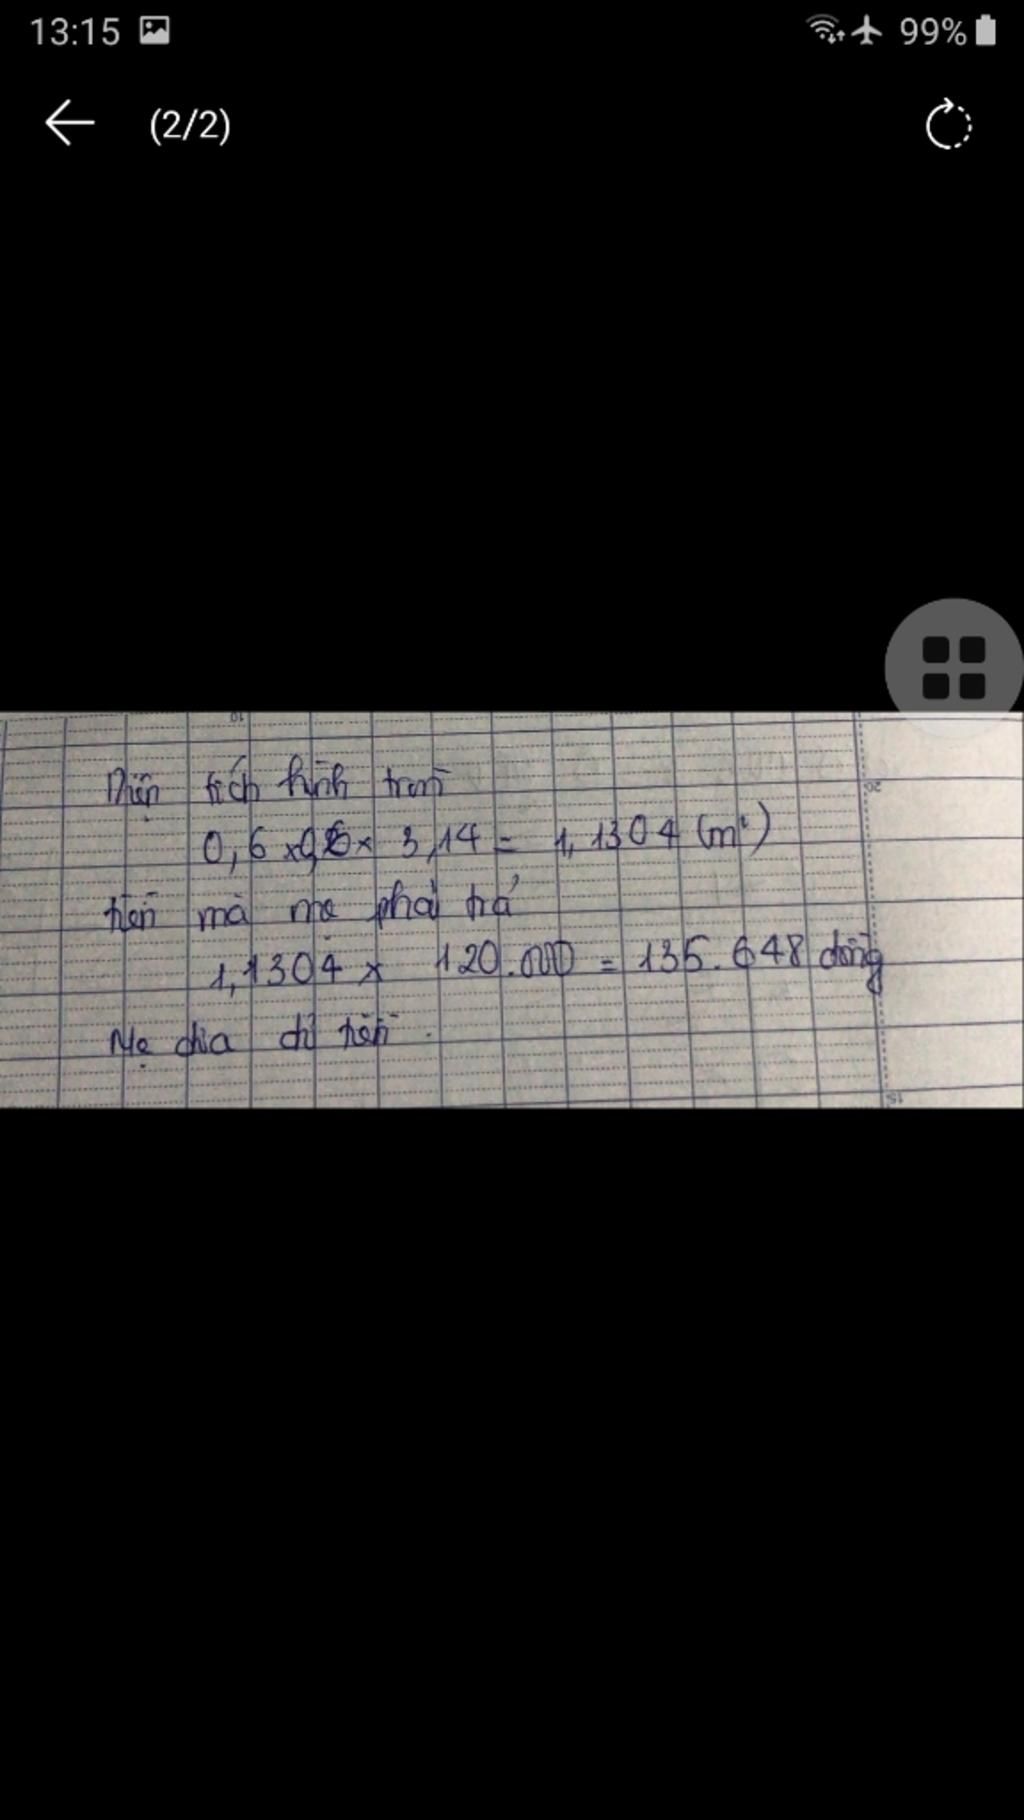 13:15 99%
(2/2)
10
Diện tích hình tròn
20
0,6 x 0,6 x 3,14 = 1,1304 (m²)
tiền mà mẹ phải trả
1,1304 x 120.000 = 135.648 đồng
Mẹ chưa đủ tiền.
15